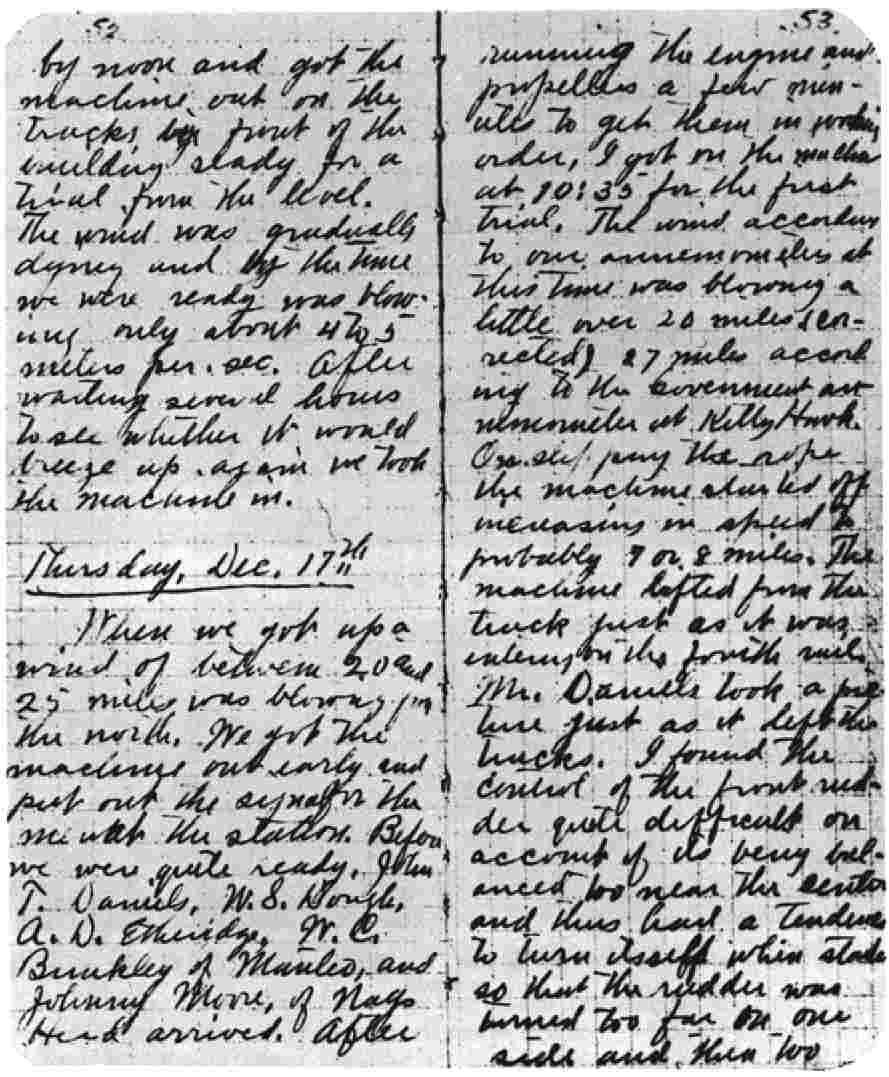 52
by noon and got the
machine out on the
tracks in front of the
building ready for a
trial from the level.
The wind was gradually
dyney and by the time
we were ready was blow-
ing only about 4 to 5
meters per. sec. After
waiting several hours
to see whether it would
breeze up again we took
the machine in.
Thursday, Dec. 17th
When we got up a
wind of between 20 and
25 miles was blowing from
the north. We got the
machine out early and
put out the signal for the
men at the station. Before
we were quite ready, John
T. Daniels, W. S. Dough,
A. D. Etheridge, W. C.
Brinkley of Manteo, and
Johnny Moore, of Nags
Head arrived. After
53
running the engine and
propellers a few min-
utes to get them in working
order, I got on the machine
at 10:35 for the first
trial. The wind according
to our annemometers at
this time was blowing a
little over 20 miles (cor-
rected) 27 miles accord
ing to the Government an-
nemometer at Kitty Hawk.
On slipping the rope
the machine started off
increasing in speed to
probably 7 or 8 miles. The
machine lifted from the
truck just as it was
entering on the fourth rail.
Mr. Daniels took a pic
ture just as it left the
tracks. I found the
control of the front rud-
der quite difficult on
account of its being bal-
anced too near the center
and thus had a tendency
to turn itself when started
so that the rudder was
turned too far on one
side and then too